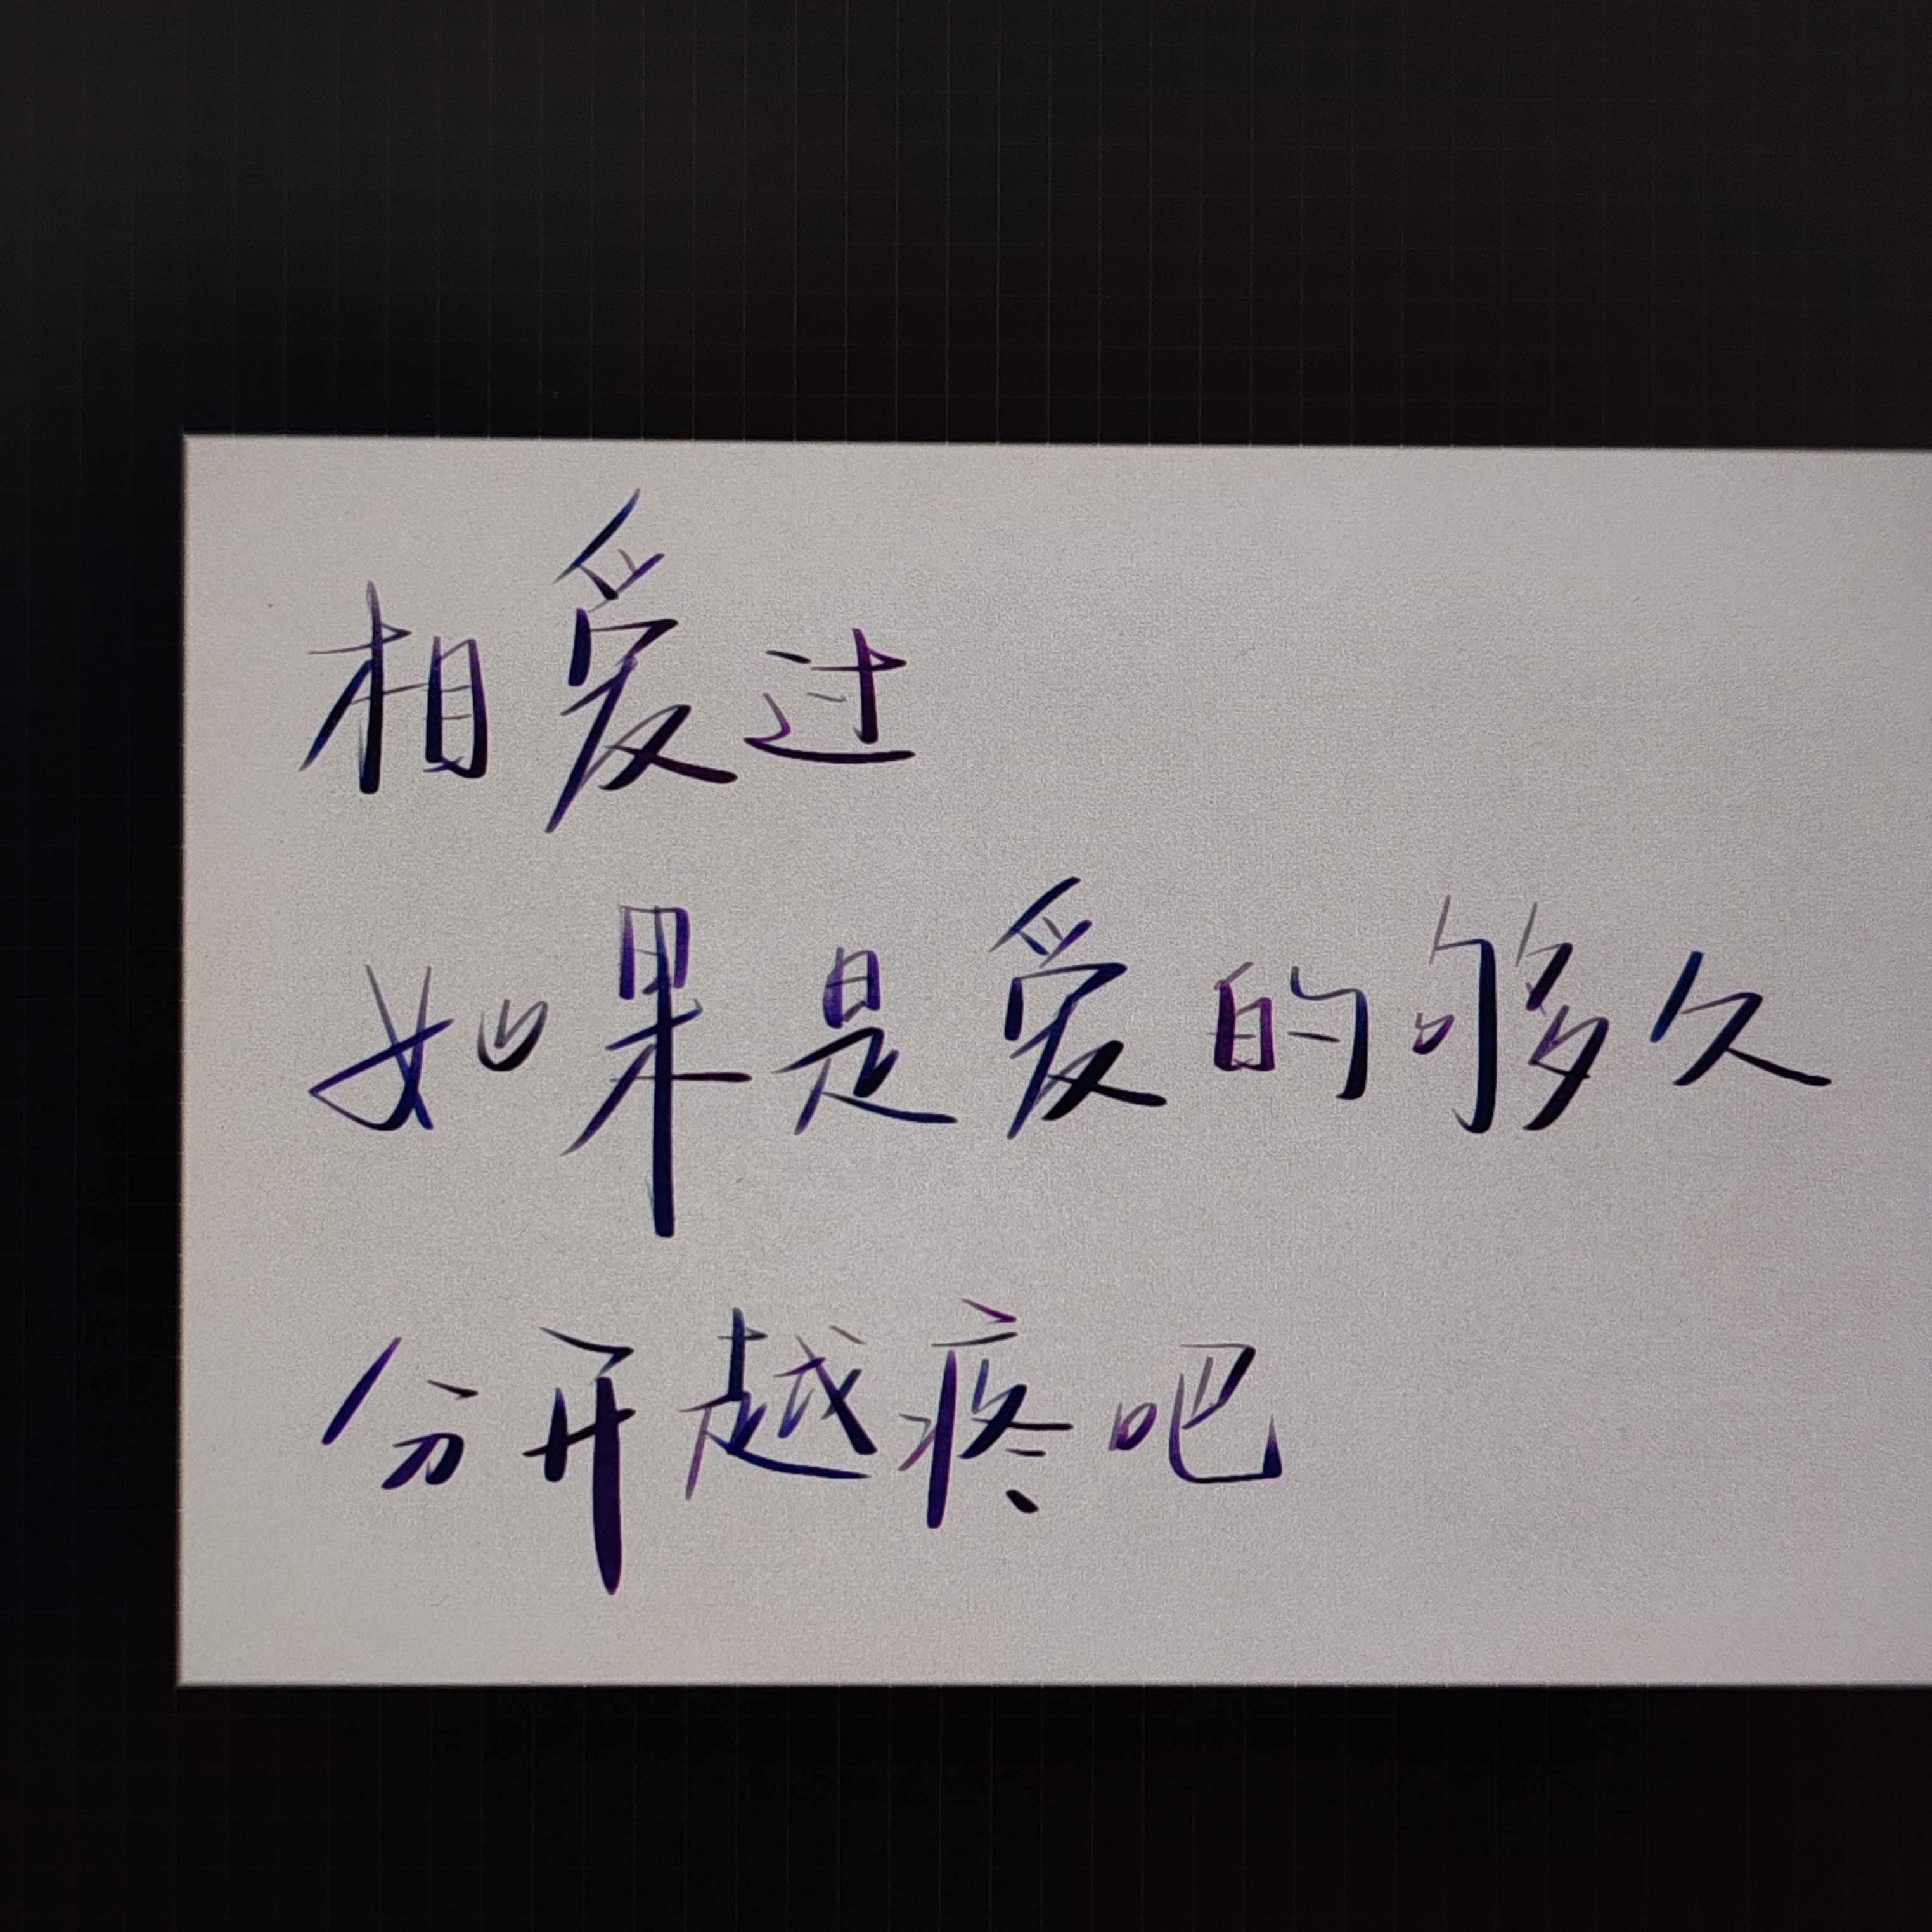 相爱过
如果是爱的够久
分开越疼吧